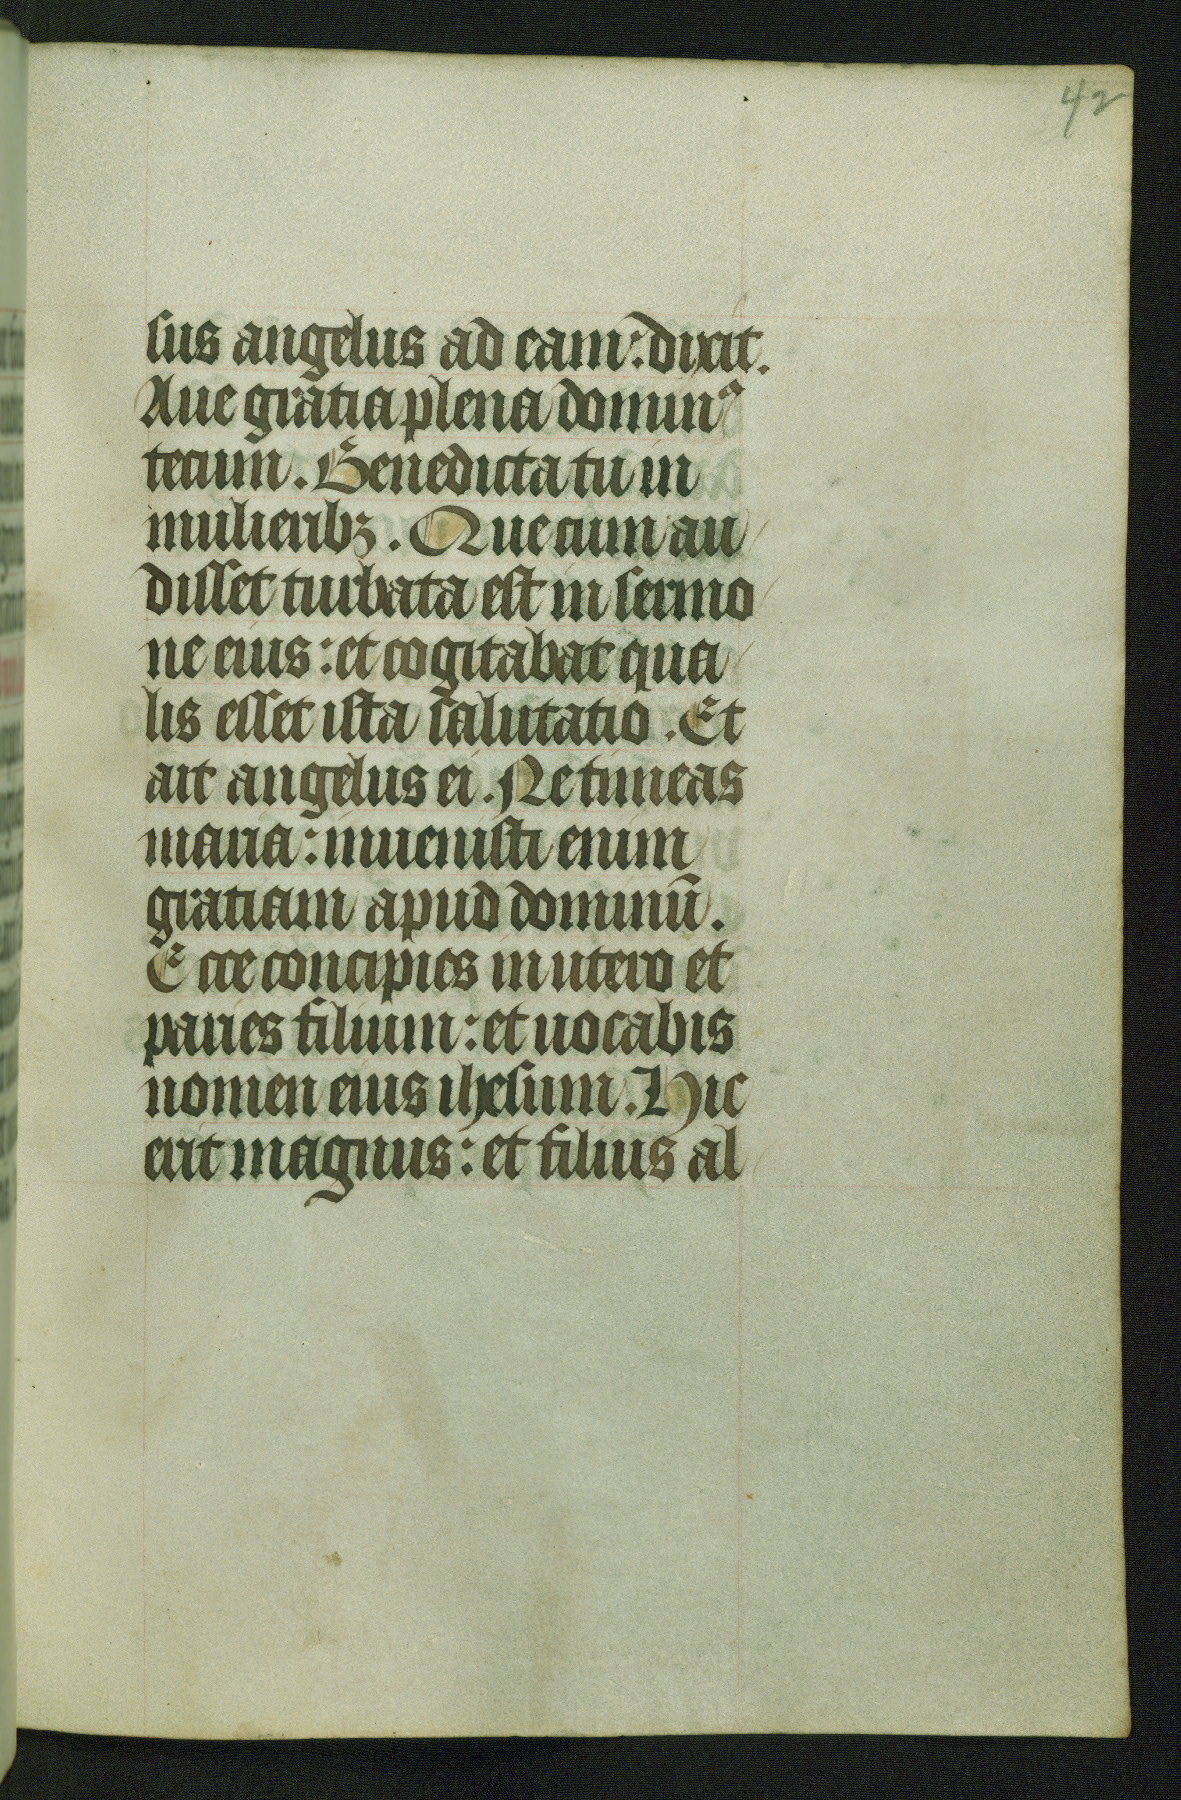 42
sus angelus ad eam: dixit.
Aue gratia plena domin⁹
tecum. Benedicta tu in
mulieribꝫ. Que cum au
disset turbata est in sermo
ne eius: et cogitabat qua
lis esset ista salutatio. Et
ait angelus ei. Ne timeas
maria: inuenisti enim
gratiam apud dominū.
Ecce concipies in utero et
paries filium: et uocabis
nomen eius ihesum. Hic
erit magnus: et filius al